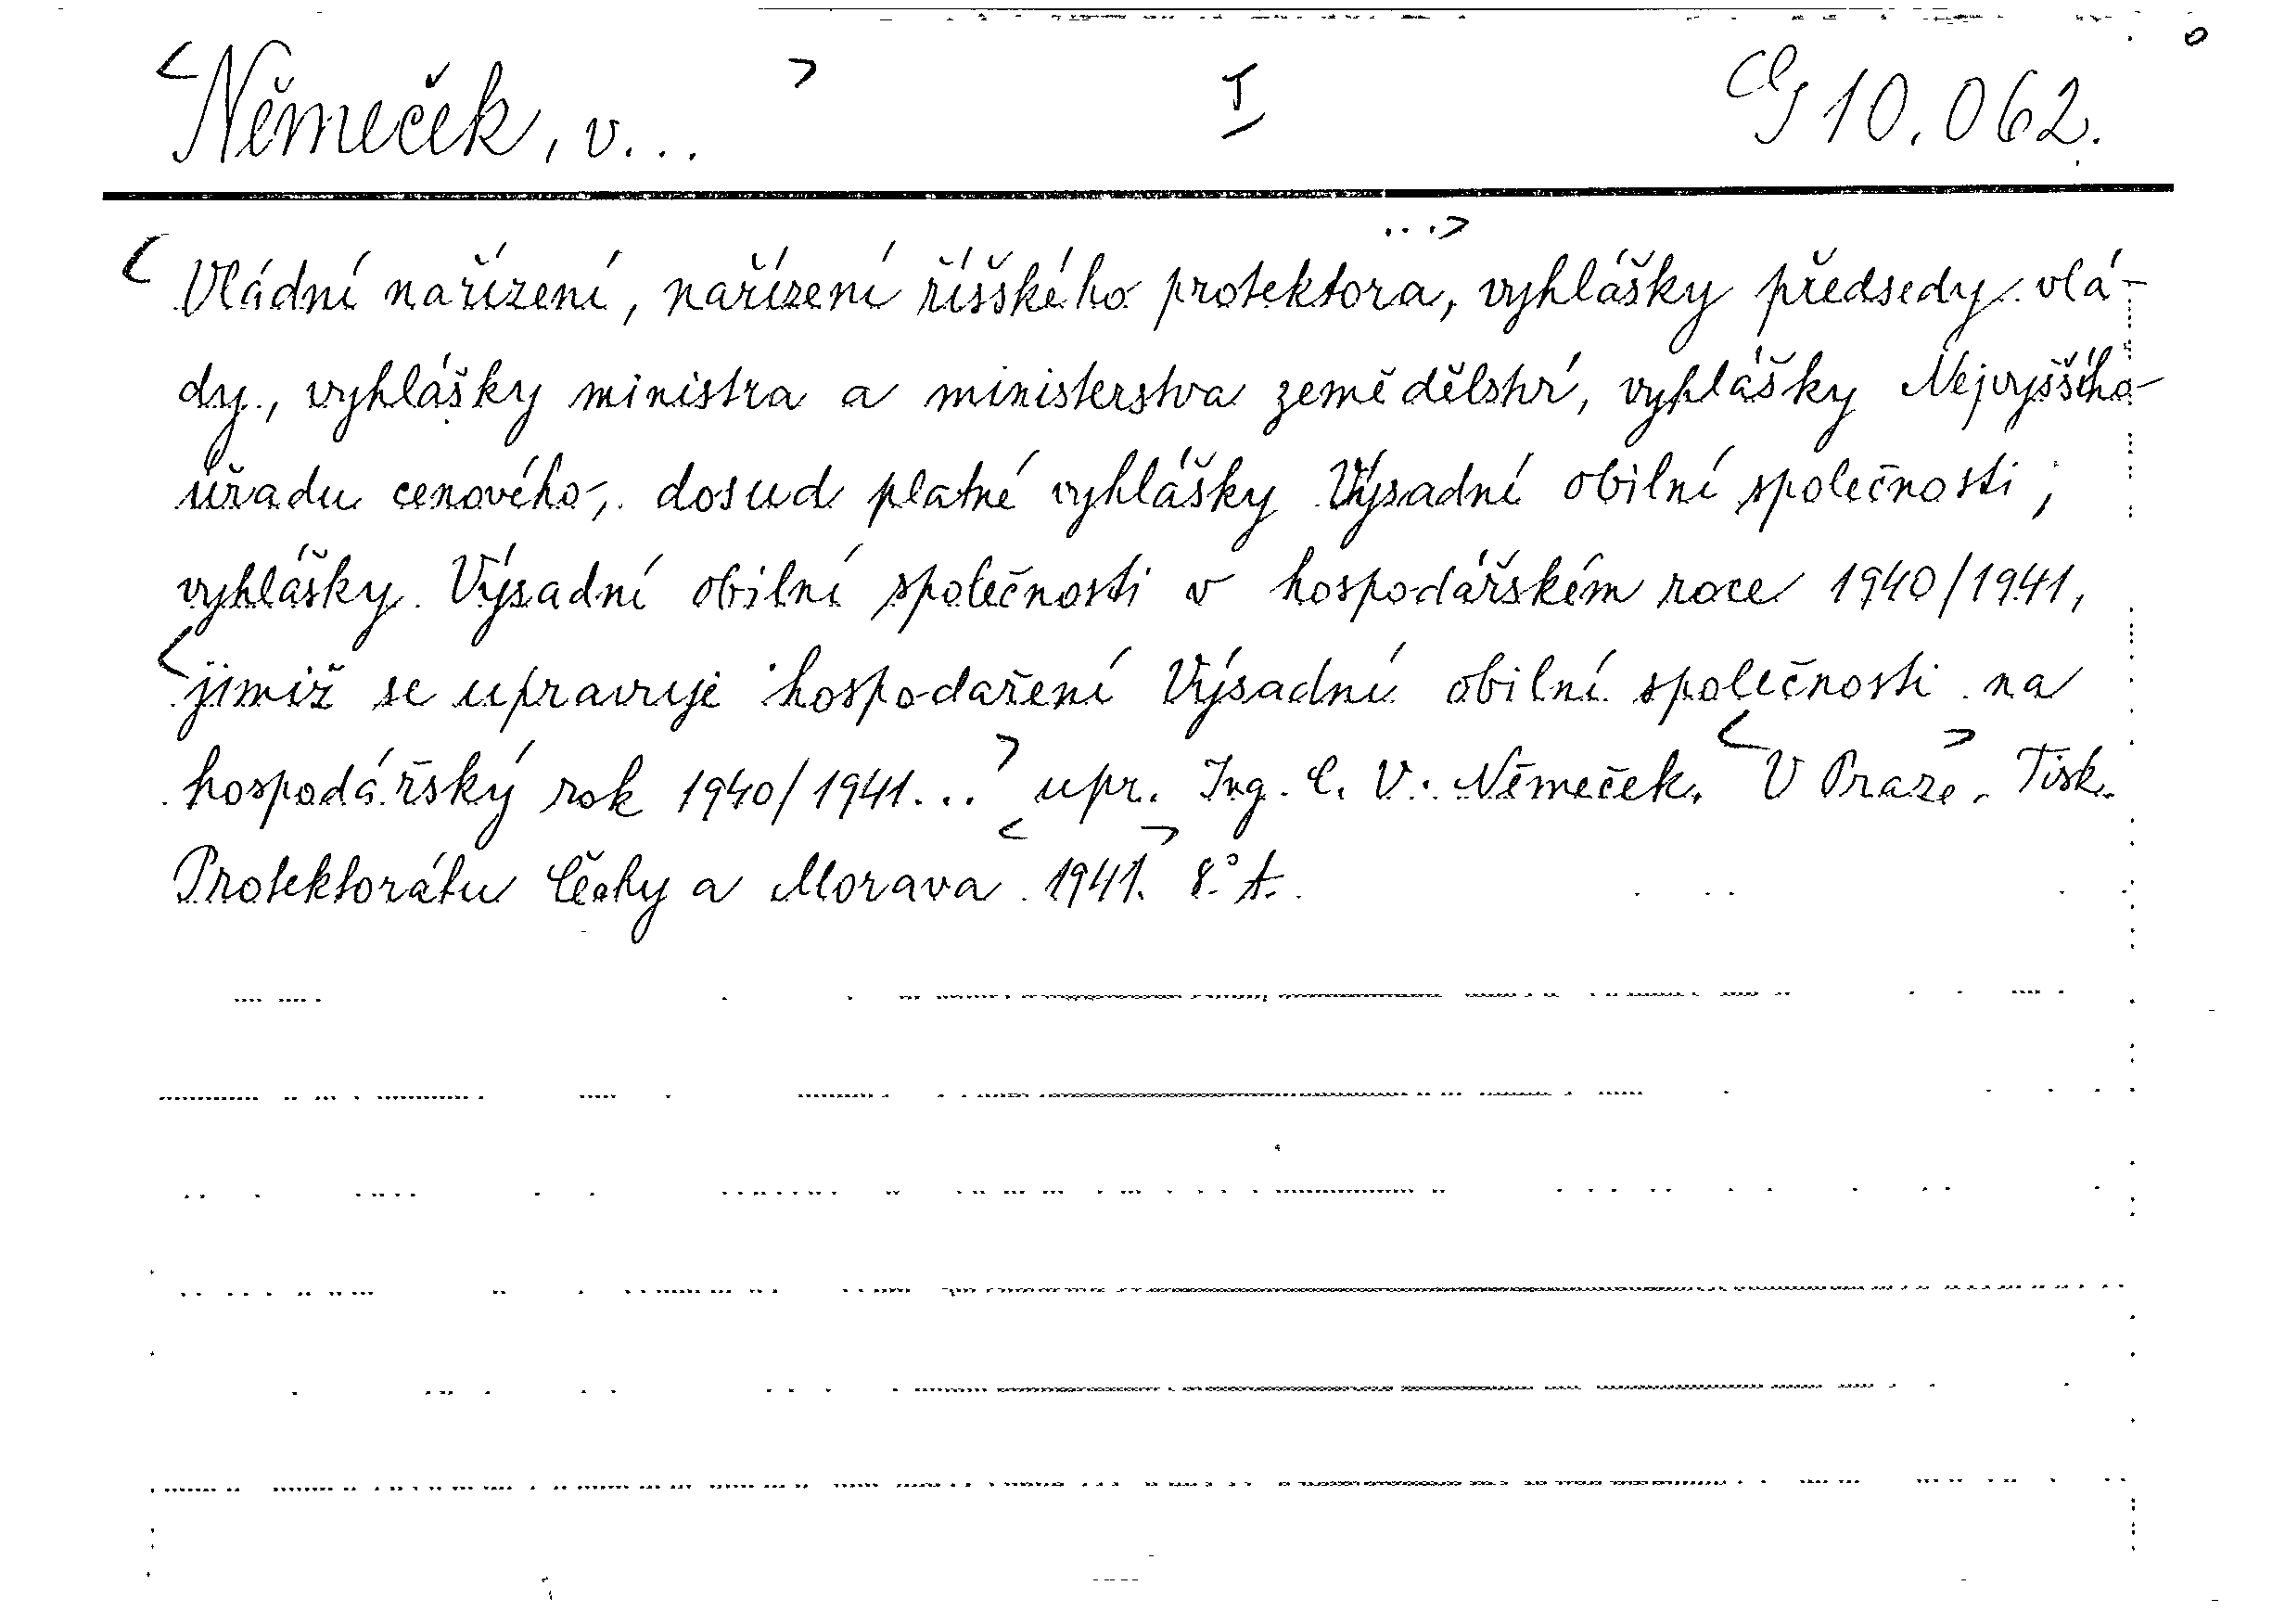 <Němeček, v...> I Cg 10.062.
<Vládní nařízení, nařízení říšského protektora, ...> vyhlášky předsedy vlá-
dy, vyhlášky ministra a ministerstva zemědělství, vyhlášky Nejvyššího
úřadu cenového, dosud platné vyhlášky Výsadní obilní společnosti,
vyhlášky Výsadní obilní společnosti v hospodářském roce 1940/1941,
<jimiž se upravuje hospodaření Výsadní obilní společnosti na
hospodářský rok 1940/1941...> upr. Ing. C. V. Němeček. <V Praze>. Tisk.
Protektorátu Čechy a Morava <1941.> 8.° A.